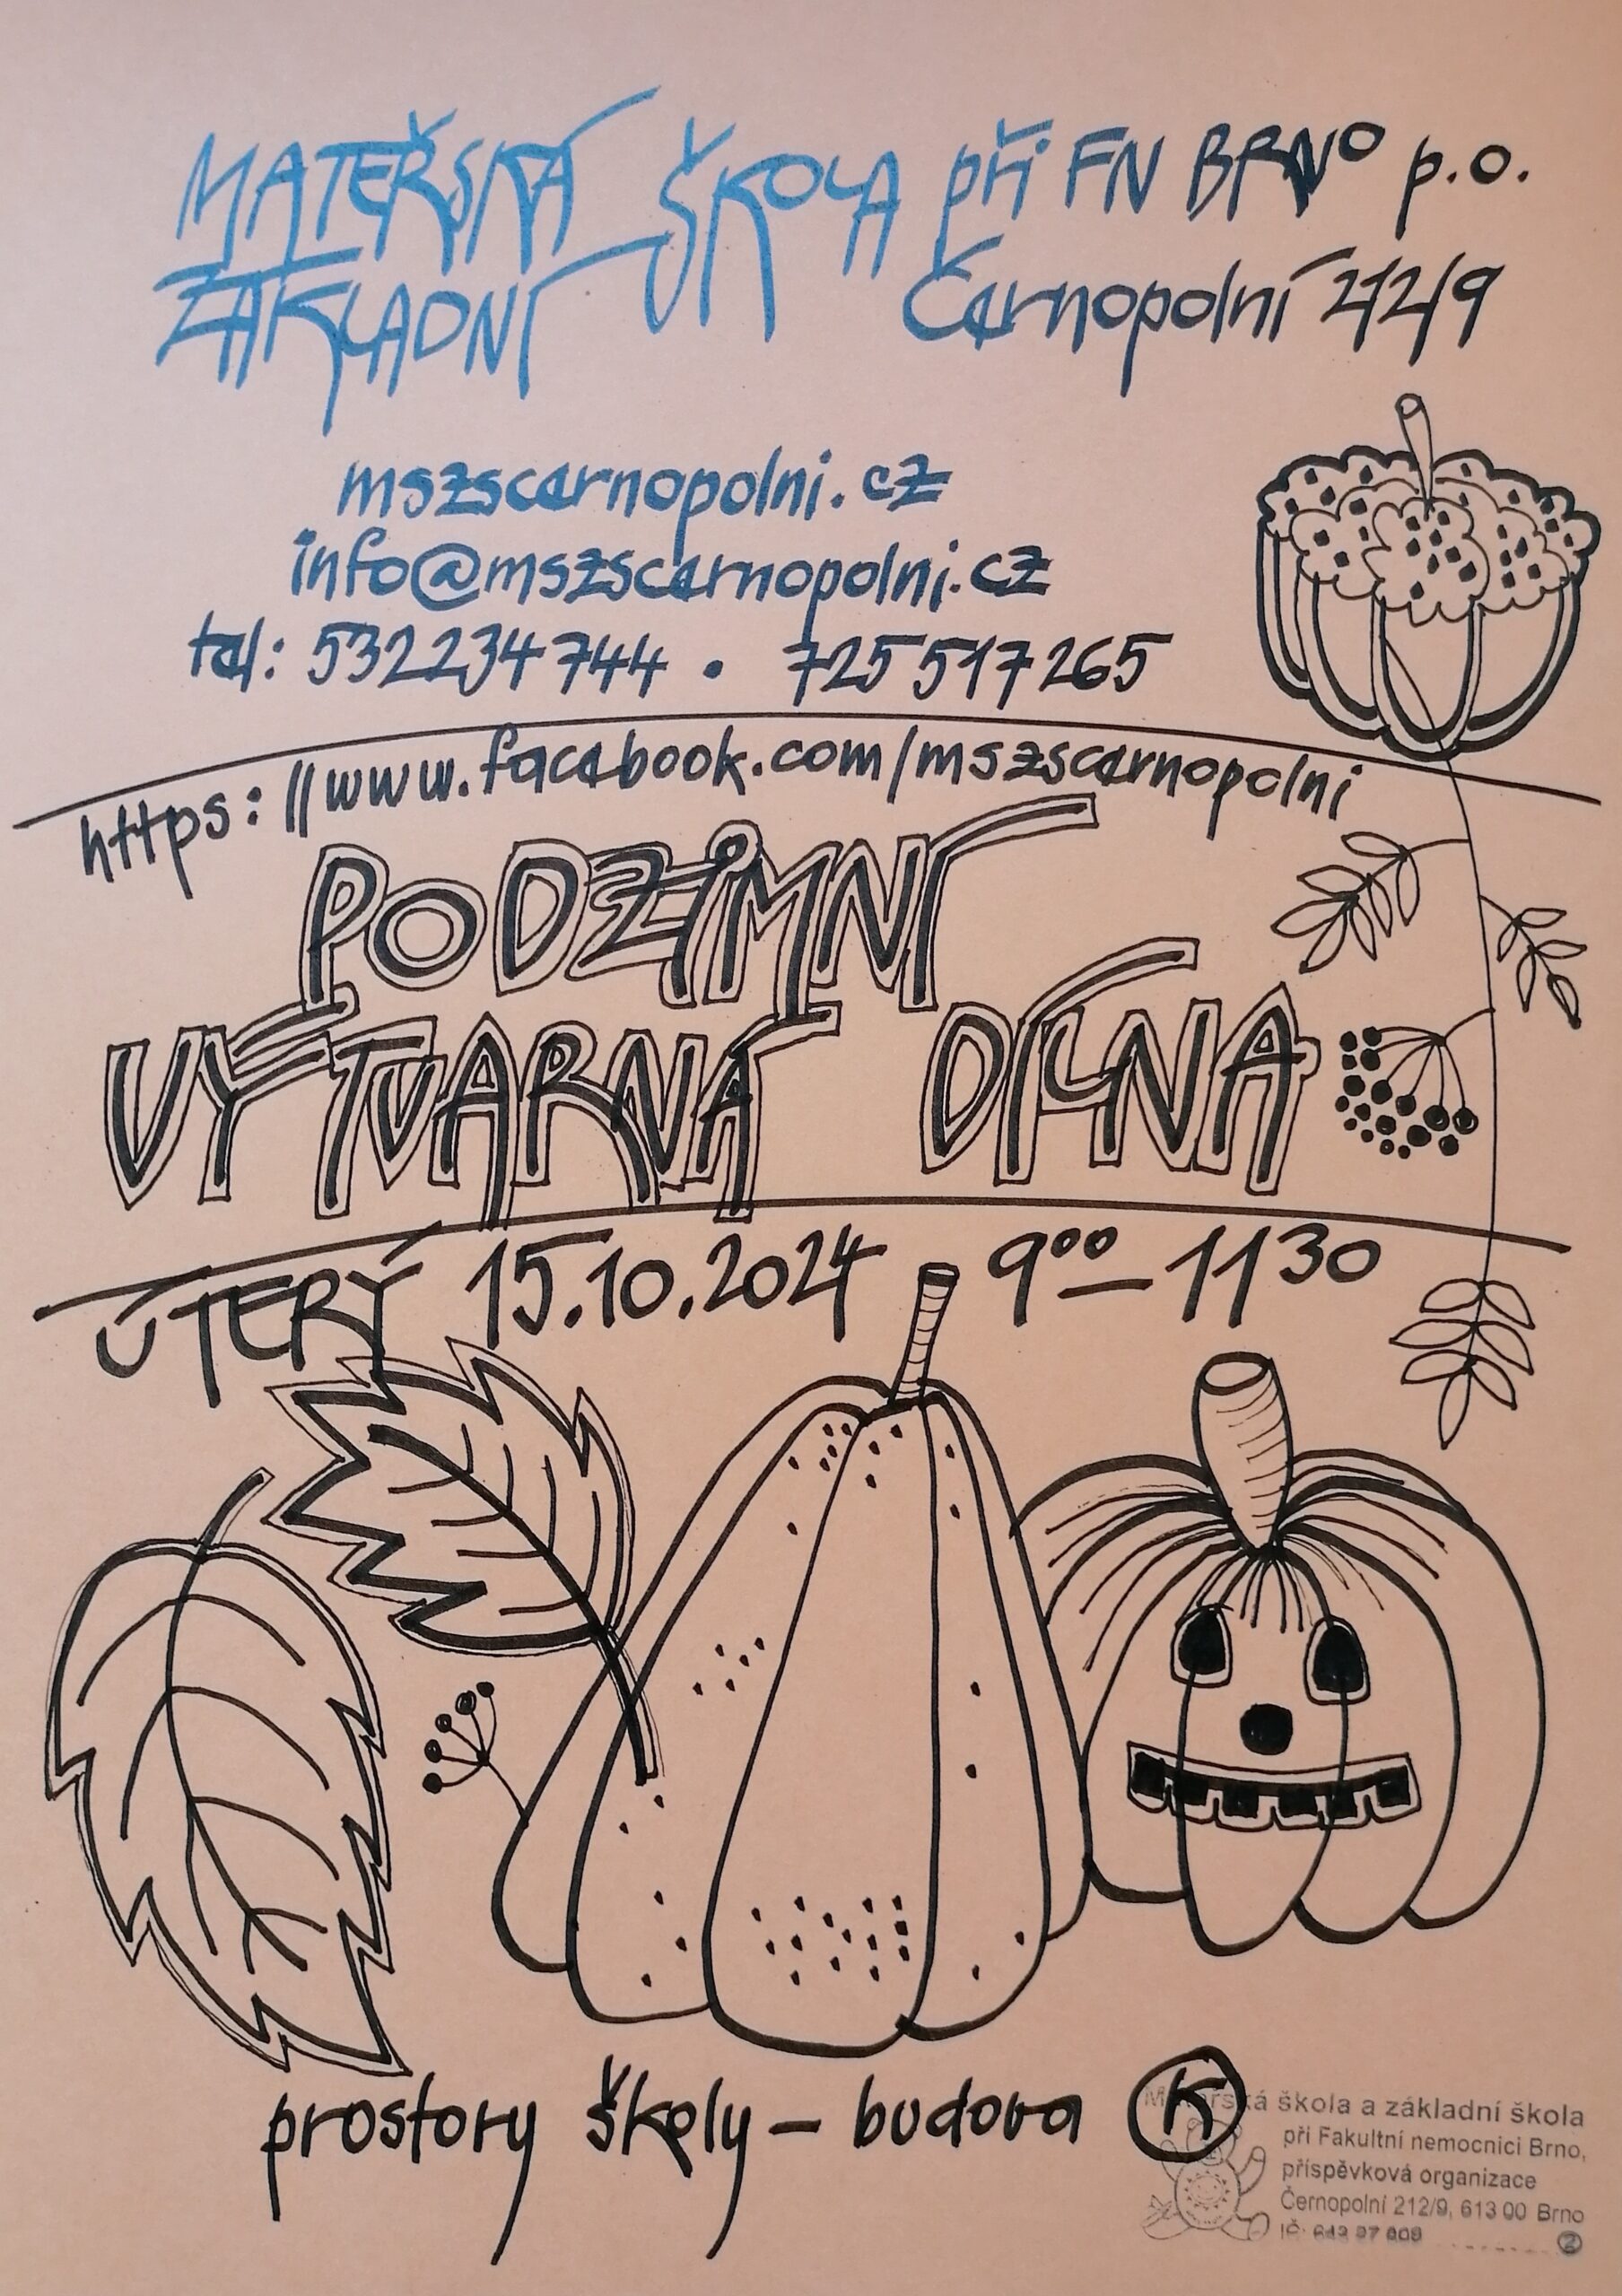 MATEŘSKÁ ŠKOLA při FN BRNO p.o.
ZÁKLADNÍ Černopolní 212/9
mszscernopolni.cz
info@mszscernopolni.cz
tel: 532234744 • 725517265
https://www.facebook.com/mszscernopolni
PODZIMNÍ
VÝTVARNÁ DÍLNA
ÚTERÝ 15.10.2024 9⁰⁰–11³⁰
prostory školy – budova K
Mateřská škola a základní škola
při Fakultní nemocnici Brno,
příspěvková organizace
Černopolní 212/9, 613 00 Brno
IČ:
2